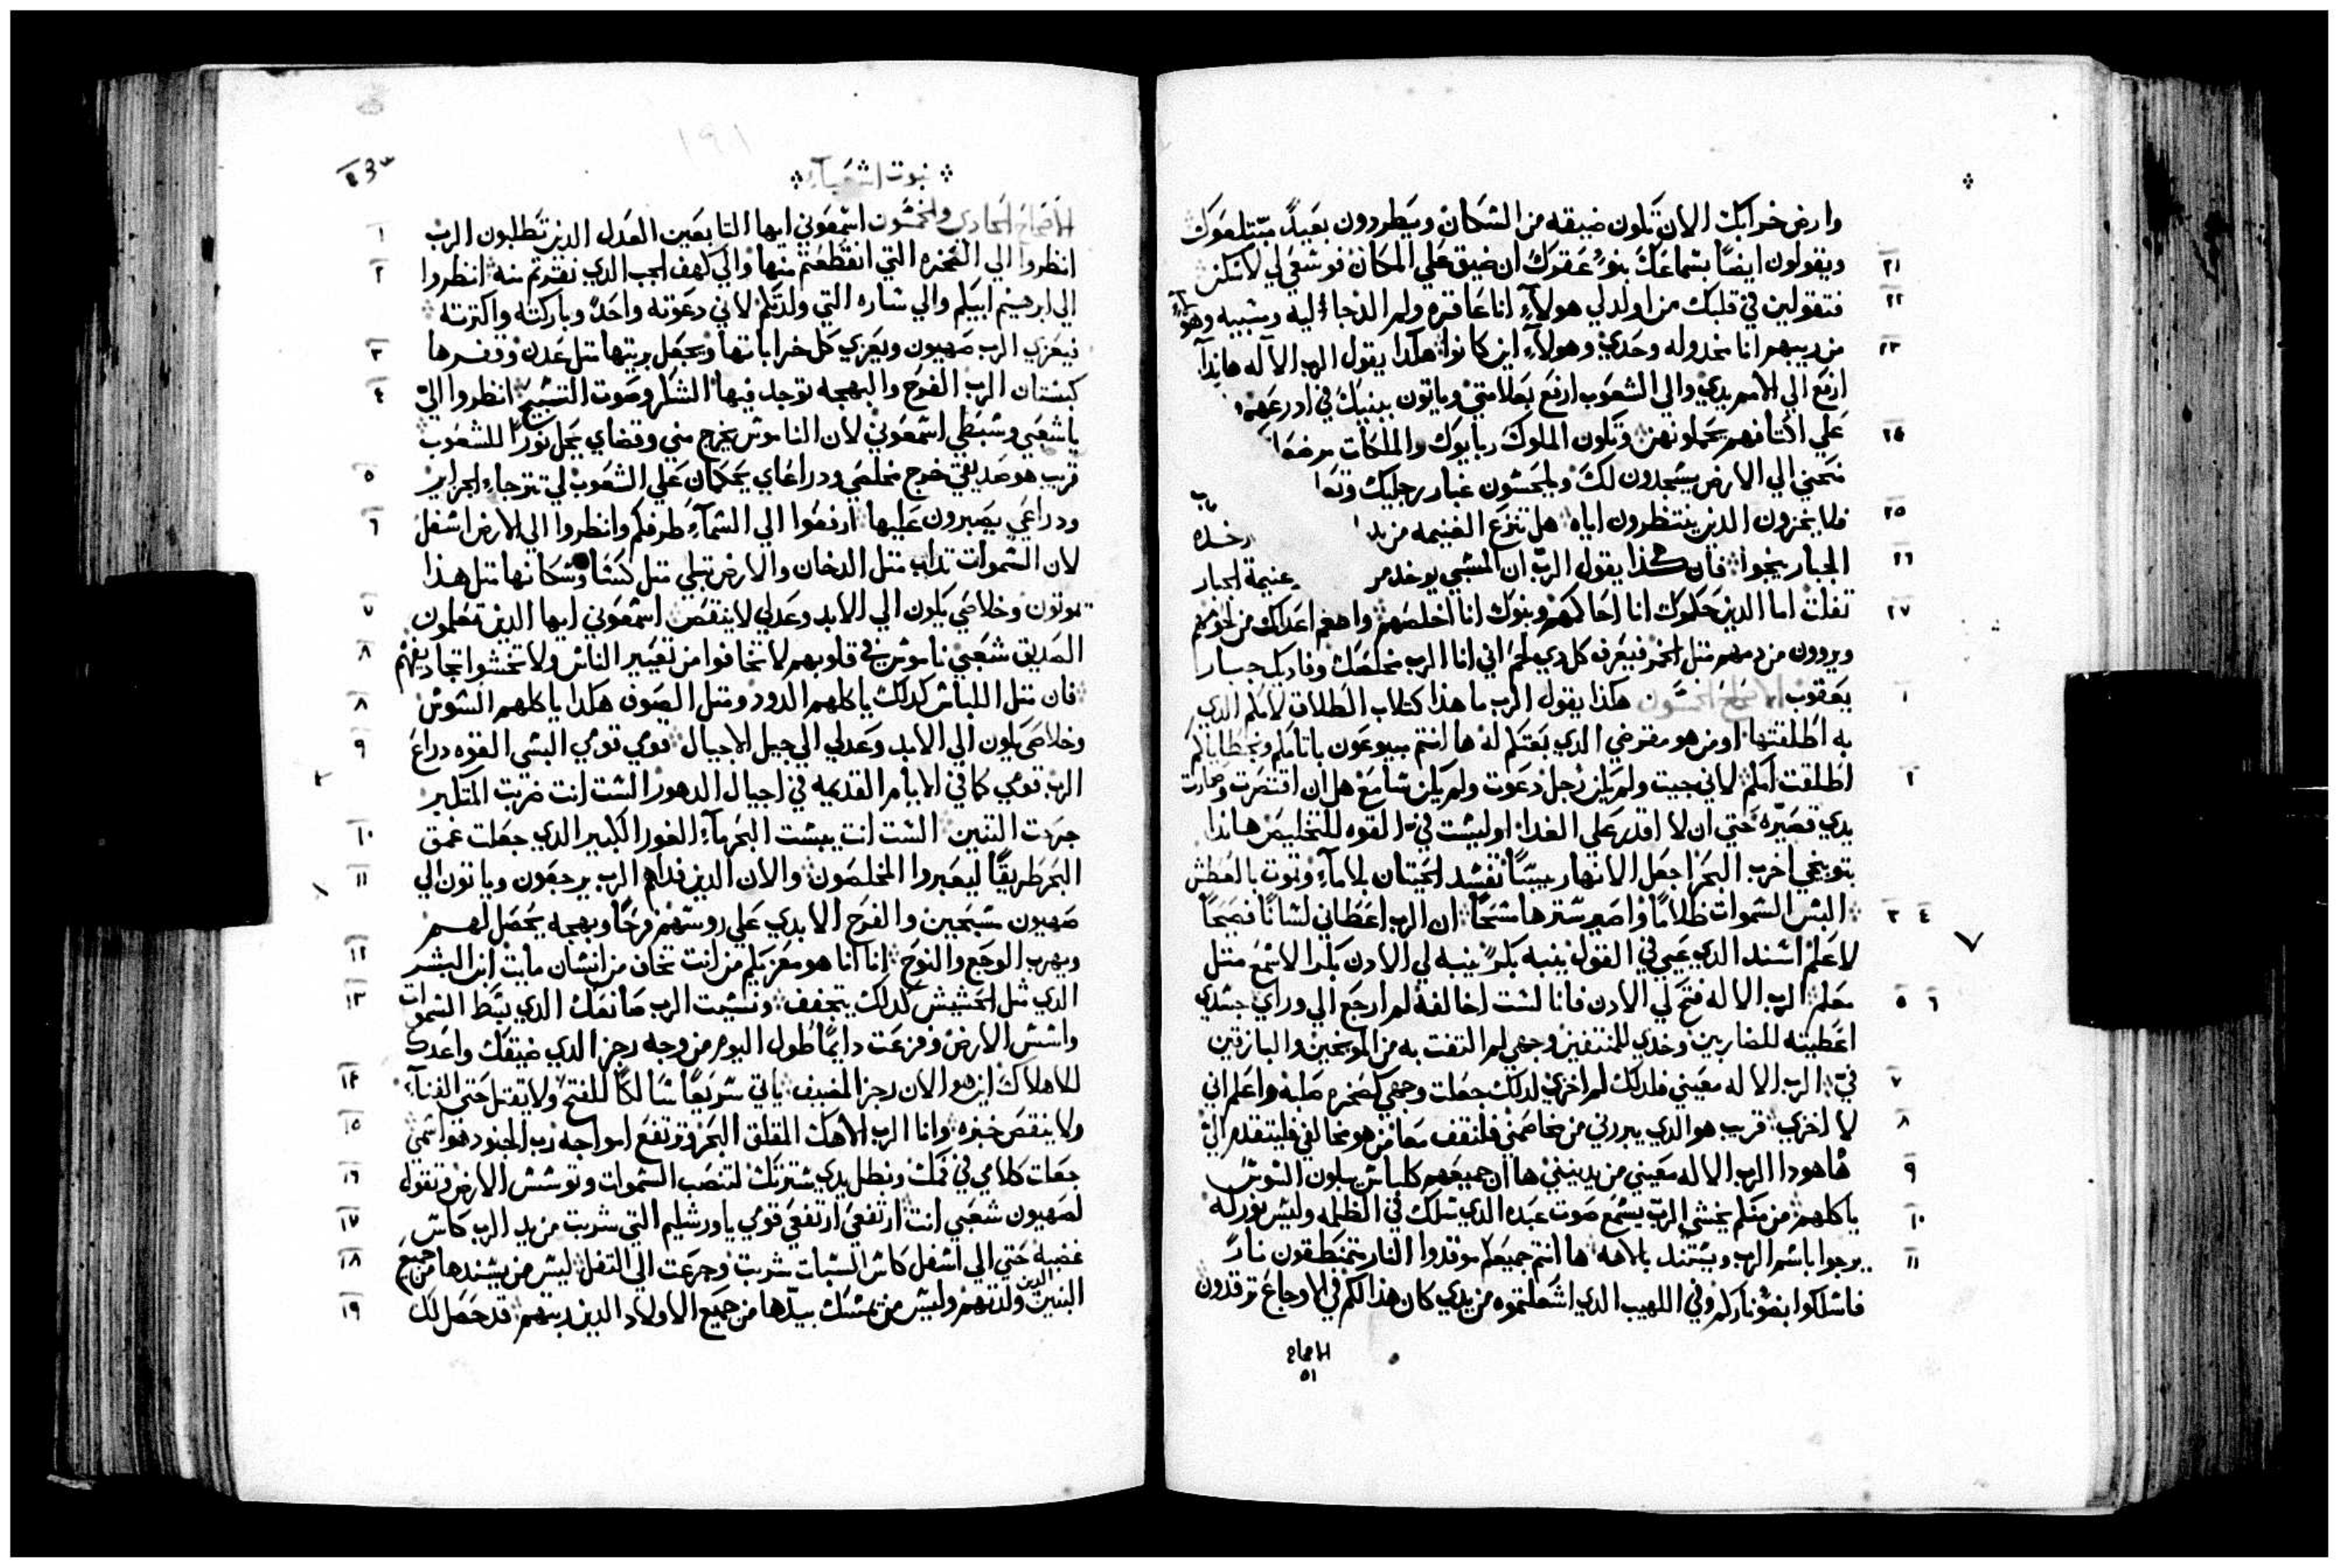 وارض خرابك الان تكون ضيقه من السكان ويطردون بعيدً مبتلعوك
٢١ ويقولون ايضًا بسماعك بنو عقرك ان ضيق علي المكان فوسعي لي لاسكن
٢٢ فتقولين في قلبك من اولد لي هولآءِ انا عاقره ولم الد جاليه ومسبيه وهولآءِ
٢٣ من ربيهم انا مخدوله وحدي وهولآءِ اين كانوا هكدا يقول الرب الاله هانذا
ارفع الي الامم يدي والي الشعوب ارفع بعلامتي وياتون ببنيك في ادرعهم
٢٤ علي اكتافهم يحملونهن وتكون الملوك ربايوك والملكات مرضعا
منحني الي الارض يسجدون لك ويلحسون غبار رجليك وتعا
٢٥ فلا يخزون الدين ينتظرون اياه هل تنزع الغنيمه من يد
٢٦ الجبار ينجوا فان هكذا يقول الرب ان السبي يوخد من غنيمة الجبار
٢٧ تفلت اما الدين حكموك انا احاكمهم وبنوك انا اخلصهم واطعم اعداك من لحومهم
ويروون من دمهم مثل الخمر فيعرف كل دي لحم اني انا الرب مخلصك وفاديك جبار
١ يعقوب الاصحاح الخمسون هكذا يقول الرب ما هذا كتاب الطلاق لامكم الدي
به اطلقتها او من هو مقرضي الدي بعتكم له ها انتم مبيوعون باتامكم وبخطاياكم
٢ اطلقت امكم لاني جيت ولم يكن رجل دعوت ولم يكن سامع هل ان اقتصرت وصارت
يدي قصيره حتي ان لا اقدر علي الفدا او ليست في القوه للتخليص هاندا
بتوبيخي اخرب البحر اجعل الانهار يبسًا تفسد الحيتان بلا مآءِ وتموت بالعطش
٣ ٤ البس السموات ظلامًا واصير سترها مسحًا ان الرب اعطاني لسانًا فصيحًا
لاعلم اسند الدي عيي في القول ينبه بكرً ينبه لي الادن بكرا لاسمع متل
٥ ٦ معلم الرب الاله فتح لي الادن فانا لست اخالفه لم ارجع الي وراي جسدي
اعطيته للضاربين وخدي للمنتفين وجهي لم التفت به من الموبخين والبازقين
٧ في الرب الاله معيني فلدلك لم اخزي لدلك جعلت وجهي كصخره صلبه واعلم اني
٨ لا اخزي قريب هو الدي يبررني من يخاصمني فلنقف معا من هو مخالفي فليتقدم الي
٩ ها هودا الرب الاله معيني من يدينني ها ان جميعهم كلباس يبلون السوس
١٠ ياكلهم من منكم يخشي الرب يسمع صوت عبده الدي سلك في الظلمه وليس نور له
١١ يرجوا باسم الرب ويستند بالاهه ها انتم جميعكم موقدوا النار يتمنطقون نارً
فاسلكوا بضو ناركم وفي اللهيب الدي اشعلتموه من يدي كان هذا لكم في الاوجاع ترقدون
الاصحاح
٥١
١٩١
نبوت اشعيآءِ
١ الاصحاح الحادي والخمسون اسمعوني ايها التابعين العدل الدين تطلبون الرب
٢ انظروا الي الصخره التي انقطعتم منها والي كهف الجب الدي نقرتم منه انظروا
الي ابرهيم ابيكم والي ساره التي ولدتكم لاني دعوته واحدً وباركته واكترته
٣ فيعزي الرب صهيون ويعزي كل خراباتها ويجعل بريتها متل عدن وقفرها
٤ كبستان الرب الفرح والبهجه توجد فيها الشكر وصوت التسبيح انظروا الي
يا شعبي وسبطي اسمعوني لان الناموس يخرج مني وقضاي يحل نورًا للشعوب
٥ قريب هو صديقي خرج مخلصي ودراعاي يحكمان علي الشعوب لي تترجاءِ الجزاير
٦ ودراعي يصبرون عليها ارفعوا الي السمآءِ طرفكم وانظروا الي الارض اسفل
لان السموات تداب متل الدخان والارض تبلي متل كسًا وسكانها متل هذا
٧ يموتون وخلاصي يكون الي الابد وعدلي لا ينقص اسمعوني ايها الدين تعلمون
٨ الصديق شعبي ناموسي في قلوبهم لا تخافوا من تعيير الناس ولا تخشوا تجاديفهم
٨ فان متل اللباس كدلك ياكلهم الدود ومتل الصوف هكدا ياكلهم السوس
٩ وخلاصي يكون الي الابد وعدلي الي جيل الاجيال قومي قومي البسي القوه دراع
الرب قومي كما في الايام القديمه في اجيال الدهور الست انت ضربت المتكبر
١٠ جرحت التنين الست انت يبست البحر مآءِ الغور الكبير الدي جعلت عمق
١١ البحر طريقًا ليعبروا المخلصون والان الدين فداهم الرب يرجعون وياتون الي
صهيون مسبحين والفرح الابدي علي روسهم فرحًا وبهجه يحصل لهم
١٢ ويهرب الوجع والنوح انا انا هو معزيكم من انت تخاف من انسان مايت ابن البشر
١٣ الدي متل الحشيش كدلك يتجفف ونسيت الرب صانعك الدي بسط السموات
واسس الارض وفزعت دايمًا طول اليوم من وجه رجز الدي ضيقك واعدك
١٤ للاهلاك اين هو الان رجز المضيف ياتي سريعًا سالكًا للفتح ولا يقتل حتي الفنآءِ
١٥ ولا ينقص خبزه وانا الرب الاهك المقلق البحر وترتفع امواجه رب الجنود هو اسمي
١٦ جعلت كلامي في فمك وبظل يدي سترتك لتنصب السموات وتوسس الارض وتقول
١٧ لصهيون شعبي انت ارتفعي ارتفعي قومي يا اورشليم التي شربت من يد الرب كاس
١٨ غضبه حتي الي اسفل كاس السبات شربت وجرعت الي التفل ليس من يسندها من جميع
١٩ البنين الدين ولدتهم وليس من يمسك بيدها من جميع الاولاد الدين ربتهم قد حصل لك